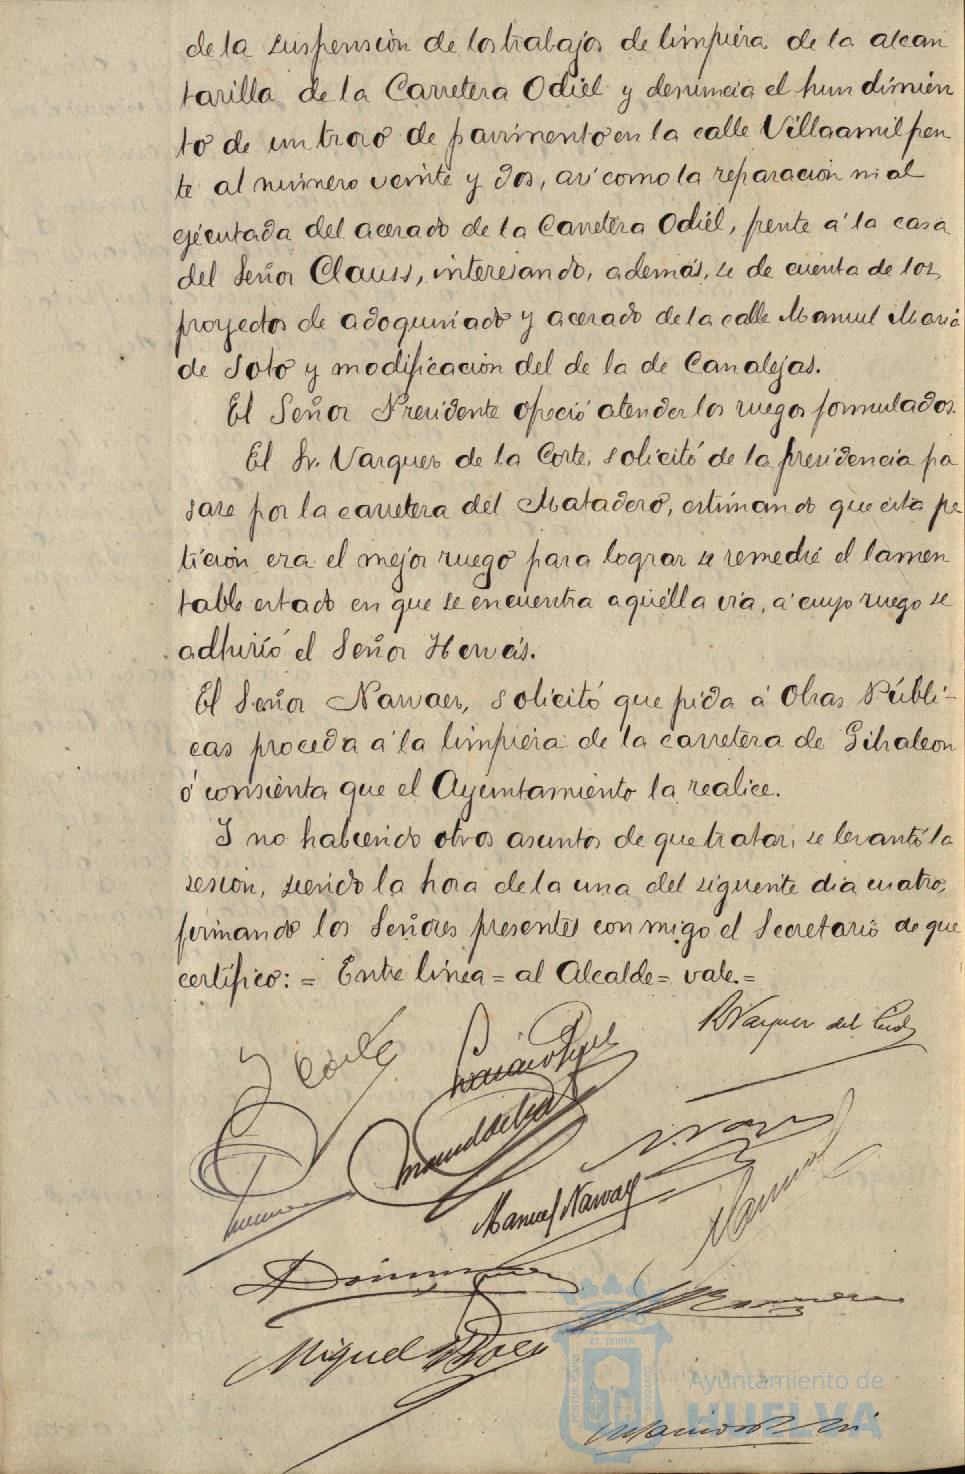 de la suspensión de los trabajos de limpiéra de la alcan
tarilla de la Carretera Odiel y denuncia el hundimien
to de un trozo de pavimento en la calle Villaamil fren
te al número veinte y dos, así como la reparación mal
ejécutada del acerado de la Carretera Odiél, frente á la casa
del Señor Clauss, interesando, además, se de cuenta de los
proyectos de adoquinado y acerado de la calle Manuel María
de Soto y modificación del de la de Canalejas.
El Señor Presidente ofreció atender los ruegos formulados.
El Sr. Vazquez de la Corte, solicitó de la presidencia pa
sase por la carretera del Matadero, estimando que esta pe
tición era el mejor ruego para lograr se remedié el lamen
table estado en que se encuentra aquélla vía, á cuyo ruego se
adhirió el Señor Hervás.
El Señor Narvaez, solicitó que pida á Obras Públi-
cas proceda á la limpiéra de la carretera de Gibraleon
ó consienta que el Ayuntamiento la realice.
Y no habiendo otros asuntos de que tratar, se levantó la
sesión, siendo la hora de la una del siguiente día cuatro,
firmando los Señores presentes conmigo el Secretario de que
certífico: = Entre línea = al Alcalde = vale. =
Corte
R Vazquez del
Manuel Narvaez
Dominguez
Miguel
PORTUS MARIS ET TERRAE CUSTODIA
Ayuntamiento de
HUELVA